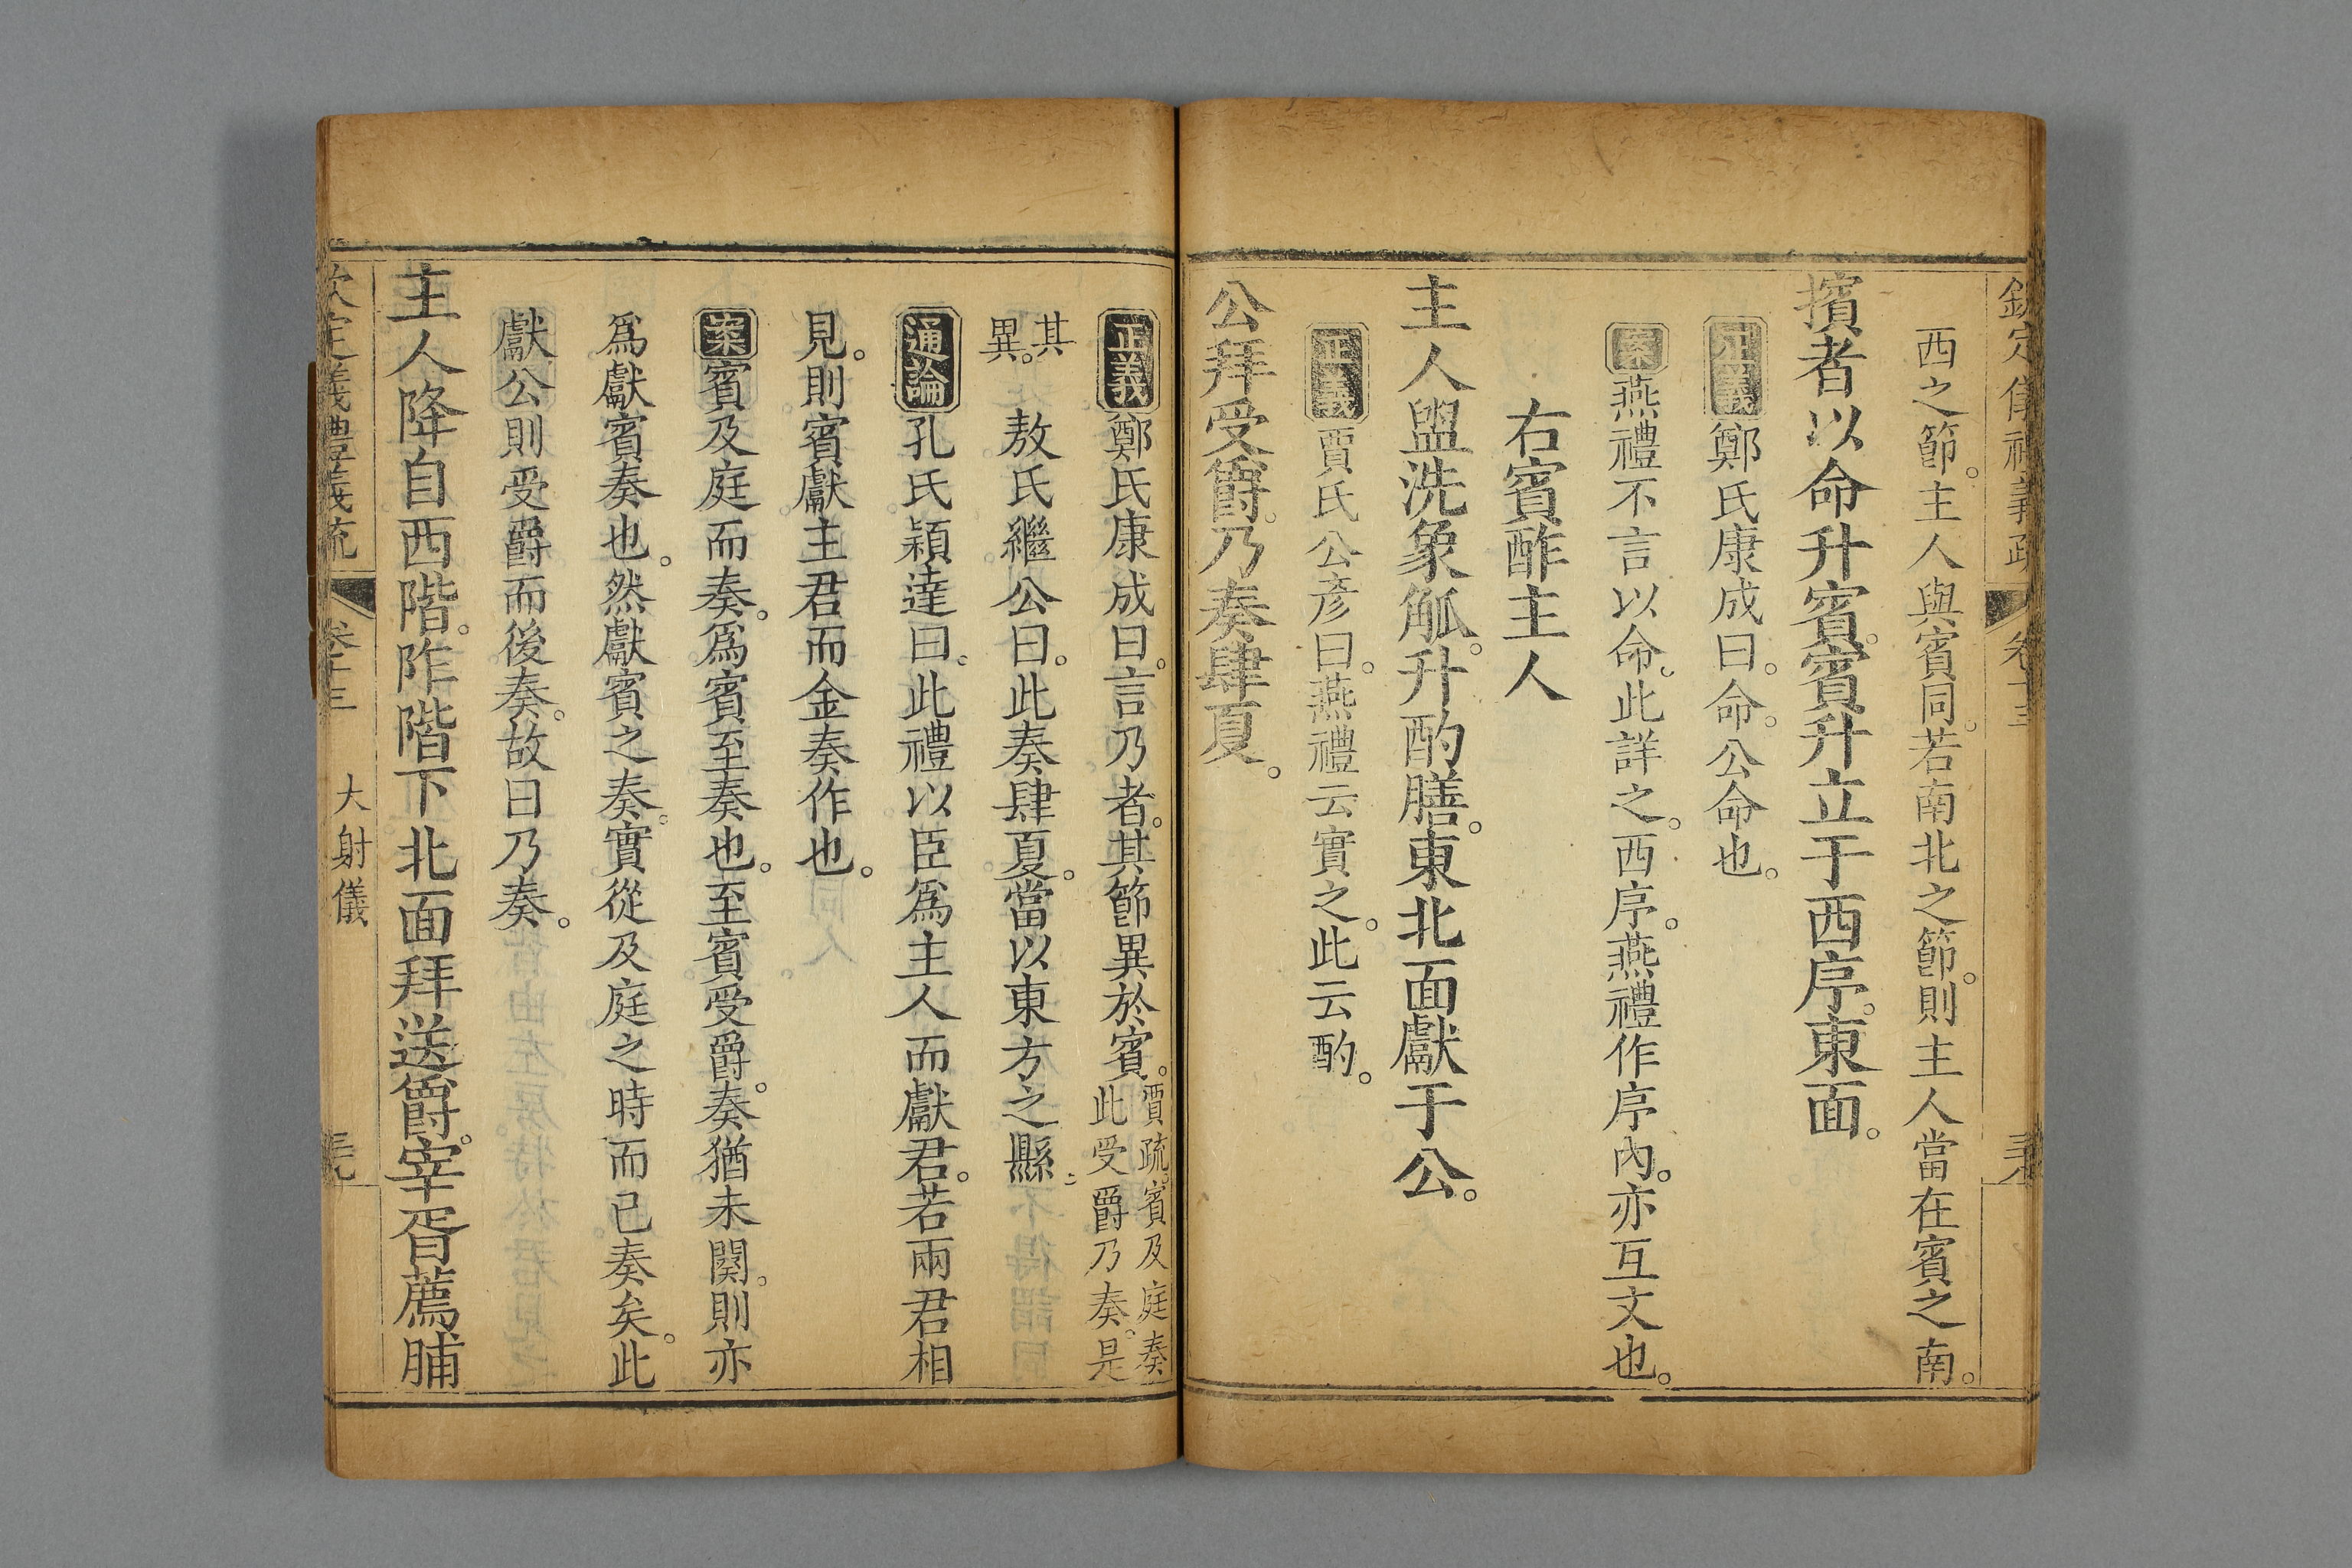 欽定儀禮義疏 卷十三
西之節。主人與賓同。若南北之節。則主人當在賓之南。
擯者以命升賓。賓升立于西序。東面。
正義鄭氏康成曰。命。公命也。
案燕禮不言以命。此詳之。西序。燕禮作序內。亦互文也。
右賓酢主人
主人盥洗象觚。升酌膳。東北面獻于公。
正義賈氏公彥曰。燕禮云實之。此云酌。
公拜受爵。乃奏肆夏。
正義鄭氏康成曰。言乃者。其節異於賓。賈疏。賓及庭奏
此受爵乃奏。是
其
異。敖氏繼公曰。此奏肆夏。當以東方之縣。
通論孔氏穎達曰。此禮以臣爲主人而獻君。若兩君相
見。則賓獻主君而金奏作也。
案賓及庭而奏。爲賓至奏也。至賓受爵。奏猶未闋。則亦
爲獻賓奏也。然獻賓之奏。實從及庭之時而已奏矣。此
獻公則受爵而後奏。故曰乃奏。
主人降自西階。阼階下北面拜送爵。宰胥薦脯
欽定儀禮義疏 卷十三 大射儀 三九